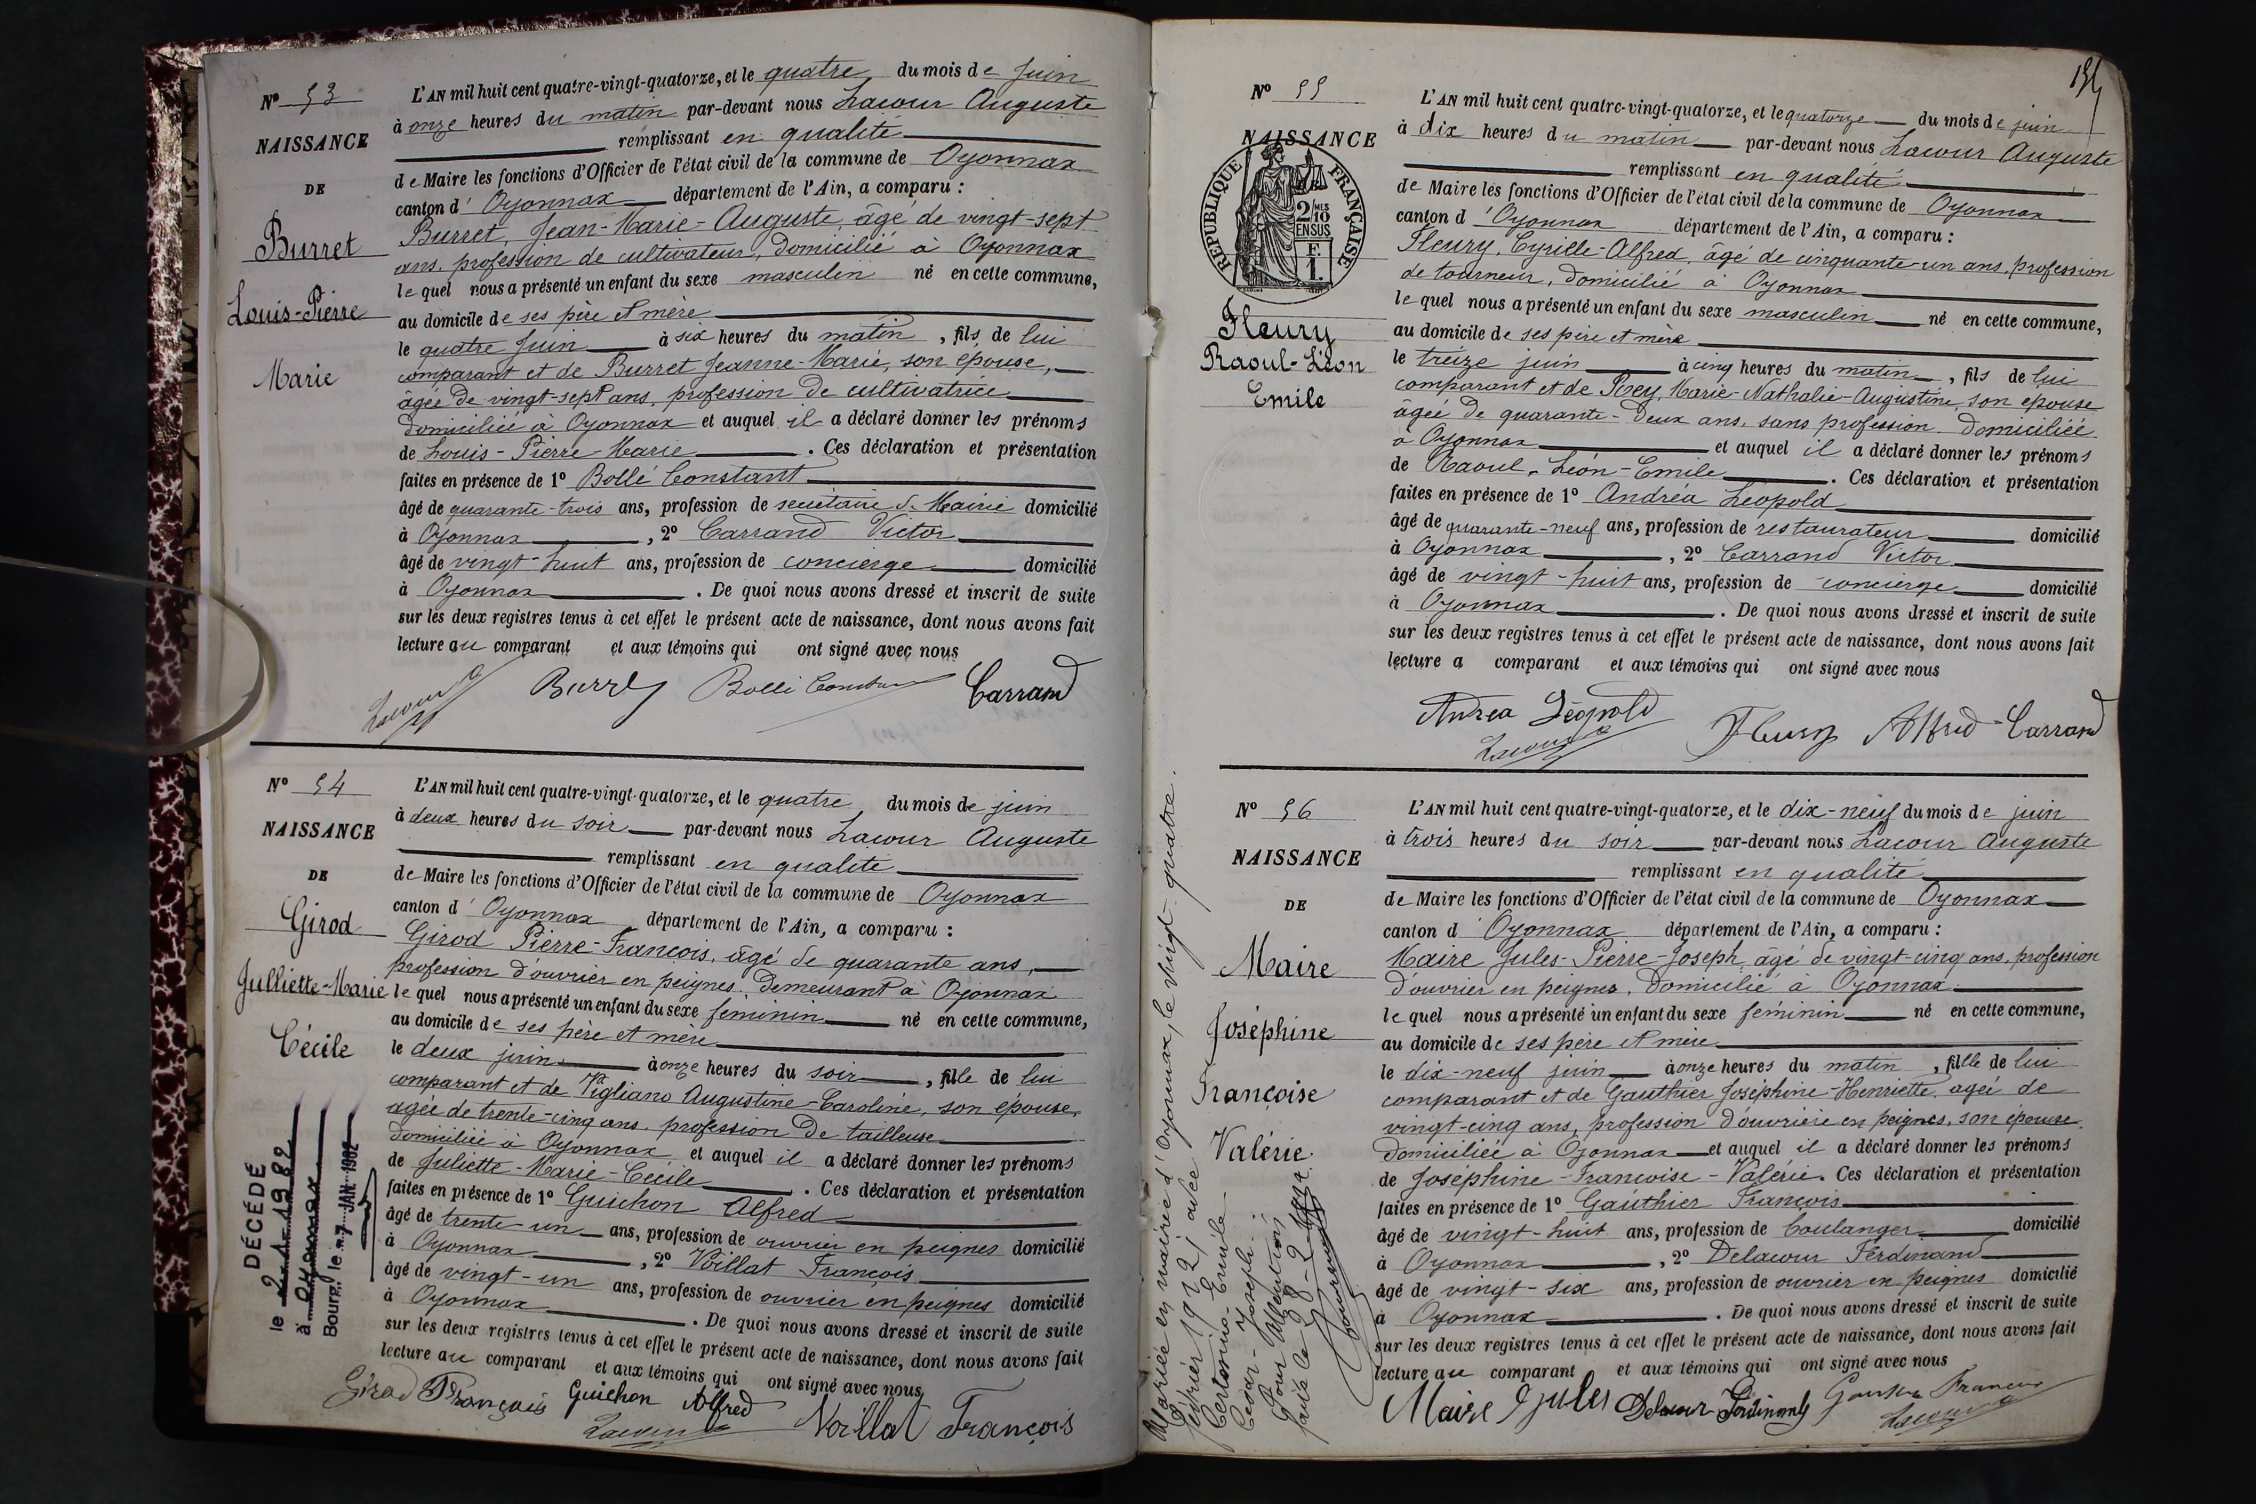 N° 53
NAISSANCE
DE
Burret
Louis-Pierre
Marie
L'AN mil huit cent quatre-vingt-quatorze, et le quatre du mois de juin
à onze heures du matin par-devant nous Lacour Auguste
remplissant en qualité
de Maire les fonctions d'Officier de l'état civil de la commune de Oyonnax
canton d' Oyonnax département de l'Ain, a comparu :
Burret, Jean-Marie-Auguste, âgé de vingt-sept
ans, profession de cultivateur, domicilié à Oyonnax
lequel nous a présenté un enfant du sexe masculin né en cette commune,
au domicile de ses père et mère
le quatre juin à six heures du matin, fils de lui
comparant et de Burret Jeanne-Marie, son épouse,
âgée de vingt-sept ans, profession de cultivatrice
domiciliée à Oyonnax et auquel il a déclaré donner les prénoms
de Louis-Pierre-Marie. Ces déclaration et présentation
faites en présence de 1° Bollé Constant
âgé de quarante-trois ans, profession de secrétaire de Mairie domicilié
à Oyonnax, 2° Carrand Victor
âgé de vingt-huit ans, profession de concierge domicilié
à Oyonnax. De quoi nous avons dressé et inscrit de suite
sur les deux registres tenus à cet effet le présent acte de naissance, dont nous avons fait
lecture au comparant et aux témoins qui ont signé avec nous
Lacour A Burret Bollé Constant Carrand
N° 54
NAISSANCE
DE
Girod
Julliette-Marie
Cécile
DÉCÉDÉ
le 2-1-1982
à Oyonnax
Bourg, le 7 JAN 1982
L'AN mil huit cent quatre-vingt-quatorze, et le quatre du mois de juin
à deux heures du soir par-devant nous Lacour Auguste
remplissant en qualité
de Maire les fonctions d'Officier de l'état civil de la commune de Oyonnax
canton d' Oyonnax département de l'Ain, a comparu :
Girod Pierre-François, âgé de quarante ans,
profession d'ouvrier en peignes, demeurant à Oyonnax
lequel nous a présenté un enfant du sexe féminin né en cette commune,
au domicile de ses père et mère
le deux juin à onze heures du soir, fille de lui
comparant et de Vigliano Augustine-Caroline, son épouse,
âgée de trente-cinq ans, profession de tailleuse
domiciliée à Oyonnax et auquel il a déclaré donner les prénoms
de Juliette-Marie-Cécile. Ces déclaration et présentation
faites en présence de 1° Guichon Alfred
âgé de trente-un ans, profession de ouvrier en peignes domicilié
à Oyonnax, 2° Voillat François
âgé de vingt-un ans, profession de ouvrier en peignes domicilié
à Oyonnax. De quoi nous avons dressé et inscrit de suite
sur les deux registres tenus à cet effet le présent acte de naissance, dont nous avons fait
lecture au comparant et aux témoins qui ont signé avec nous
Girod François Guichon Alfred
Lacour A Voillat François
154
N° 55
NAISSANCE
RÉPUBLIQUE FRANÇAISE
2/10
EN SUS
F.
1.
Fleury
Raoul-Léon
Emile
L'AN mil huit cent quatre-vingt-quatorze, et le quatorze du mois de juin
à dix heures du matin par-devant nous Lacour Auguste
remplissant en qualité
de Maire les fonctions d'Officier de l'état civil de la commune de Oyonnax
canton d' Oyonnax département de l'Ain, a comparu :
Fleury, Cyrille-Alfred, âgé de cinquante-un ans, profession
de tourneur, domicilié à Oyonnax
lequel nous a présenté un enfant du sexe masculin né en cette commune,
au domicile de ses père et mère
le treize juin à cinq heures du matin, fils de lui
comparant et de Poey, Marie-Nathalie-Augustine, son épouse
âgée de quarante-deux ans, sans profession, domiciliée
à Oyonnax et auquel il a déclaré donner les prénoms
de Raoul-Léon-Emile. Ces déclaration et présentation
faites en présence de 1° Andréa Léopold
âgé de quarante-neuf ans, profession de restaurateur domicilié
à Oyonnax, 2° Carrand Victor
âgé de vingt-huit ans, profession de concierge domicilié
à Oyonnax. De quoi nous avons dressé et inscrit de suite
sur les deux registres tenus à cet effet le présent acte de naissance, dont nous avons fait
lecture a comparant et aux témoins qui ont signé avec nous
Andrea Léopold Fleury Alfred Carrand
Lacour A
N° 56
NAISSANCE
DE
Maire
Joséphine
Françoise
Valérie
Mariée en mairie d'Oyonnax, le vingt-quatre
février 1912 avec
César-Joseph
Pour Mention
L'AN mil huit cent quatre-vingt-quatorze, et le dix-neuf du mois de juin
à trois heures du soir par-devant nous Lacour Auguste
remplissant en qualité
de Maire les fonctions d'Officier de l'état civil de la commune de Oyonnax
canton d' Oyonnax département de l'Ain, a comparu :
Maire Jules-Pierre-Joseph, âgé de vingt-cinq ans, profession
d'ouvrier en peignes, domicilié à Oyonnax
lequel nous a présenté un enfant du sexe féminin né en cette commune,
au domicile de ses père et mère
le dix-neuf juin à onze heures du matin, fille de lui
comparant et de Gauthier Joséphine-Henriette, âgée de
vingt-cinq ans, profession d'ouvrière en peignes, son épouse
domiciliée à Oyonnax et auquel il a déclaré donner les prénoms
de Joséphine-Françoise-Valérie. Ces déclaration et présentation
faites en présence de 1° Gauthier François
âgé de vingt-huit ans, profession de boulanger domicilié
à Oyonnax, 2° Delacour Ferdinand
âgé de vingt-six ans, profession de ouvrier en peignes domicilié
à Oyonnax. De quoi nous avons dressé et inscrit de suite
sur les deux registres tenus à cet effet le présent acte de naissance, dont nous avons fait
lecture au comparant et aux témoins qui ont signé avec nous
Maire Jules Delacour Ferdinand Gauthier François
Lacour A